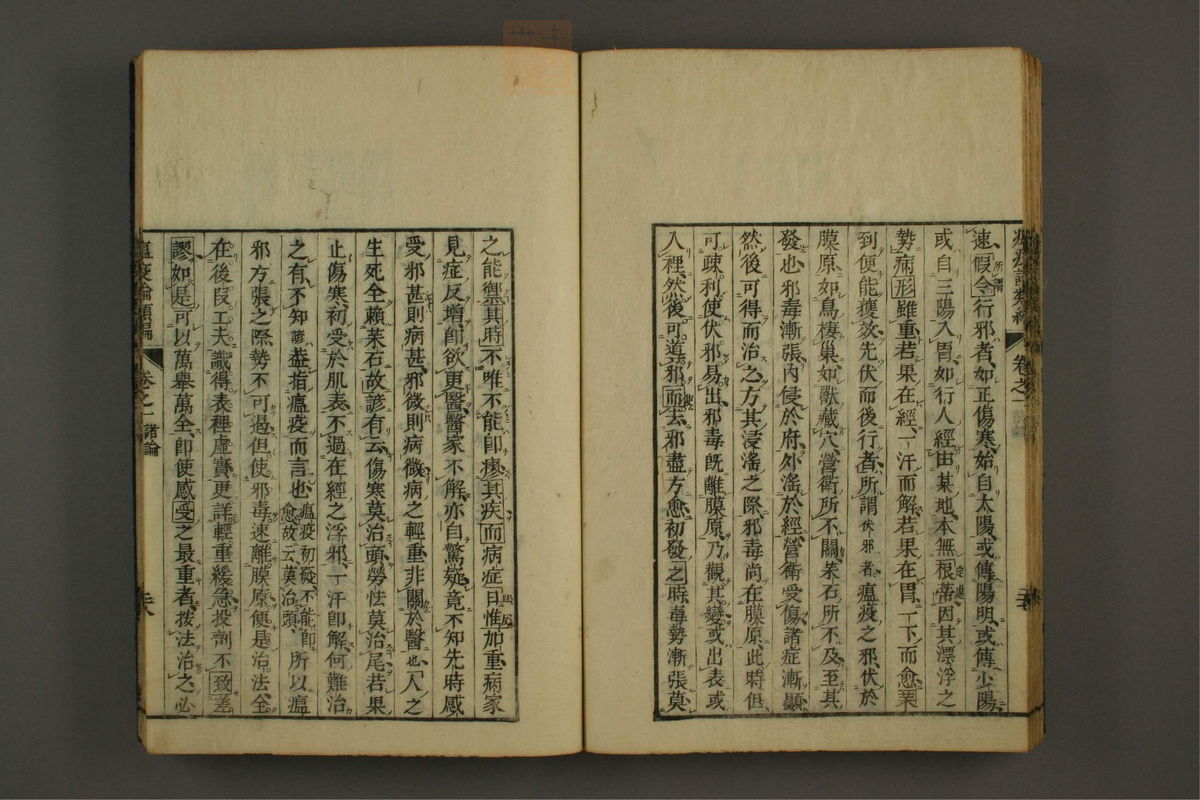 速、所謂假令行邪者、如正傷寒、始自太陽、或傳陽明、或傳少陽、
或自三陽入胃、如行人經由某地、本無根蒂、因其漂浮之
勢、病形雖重、若果在經、一汗而解、若果在胃、一下而愈、藥
到便能獲效、先伏而後行者、所謂伏邪者、瘟疫之邪、伏於
膜原、如鳥棲巢、如獸藏穴、營衛所不關、茱石所不及、至其
發也、邪毒漸張、內侵於府、外滛於經、營衛受傷、諸症漸顯、
然後可得而治之、方其浸滛之際、邪毒尚在膜原、此時但
可疎利、使伏邪易出、邪毒既離膜原、乃觀其變、或出表、或
入裡、然後可道邪而去、邪盡方愈、初發之時、毒勢漸張、莫
之能禦、其時不唯不能即瘳其疾、而病症日惟加重、病家
見症反增、即欲更醫、醫家不解、亦自驚疑、竟不知先時感
受邪甚則病甚、邪微則病微、病之輕重、非關於醫也、人之
生死全賴茱石、故諺有云、傷寒莫治頭、勞怯莫治尾、若果
止傷寒初受於肌表、不過在經之浮邪、一汗即解、何難治
之有、不知諺盍指瘟疫而言也、瘟疫初發、不能即愈、故云莫治頭、所以瘟
邪方張之際、勢不可遏、但使邪毒速離膜原便是治法、全
在後段工夫、識得表裡虛實、更詳輕重緩急、投劑不致差
謬、如是可以萬舉萬全、即使感受之最重者、按法治之、必
瘟疫論類編
卷之一
諸論